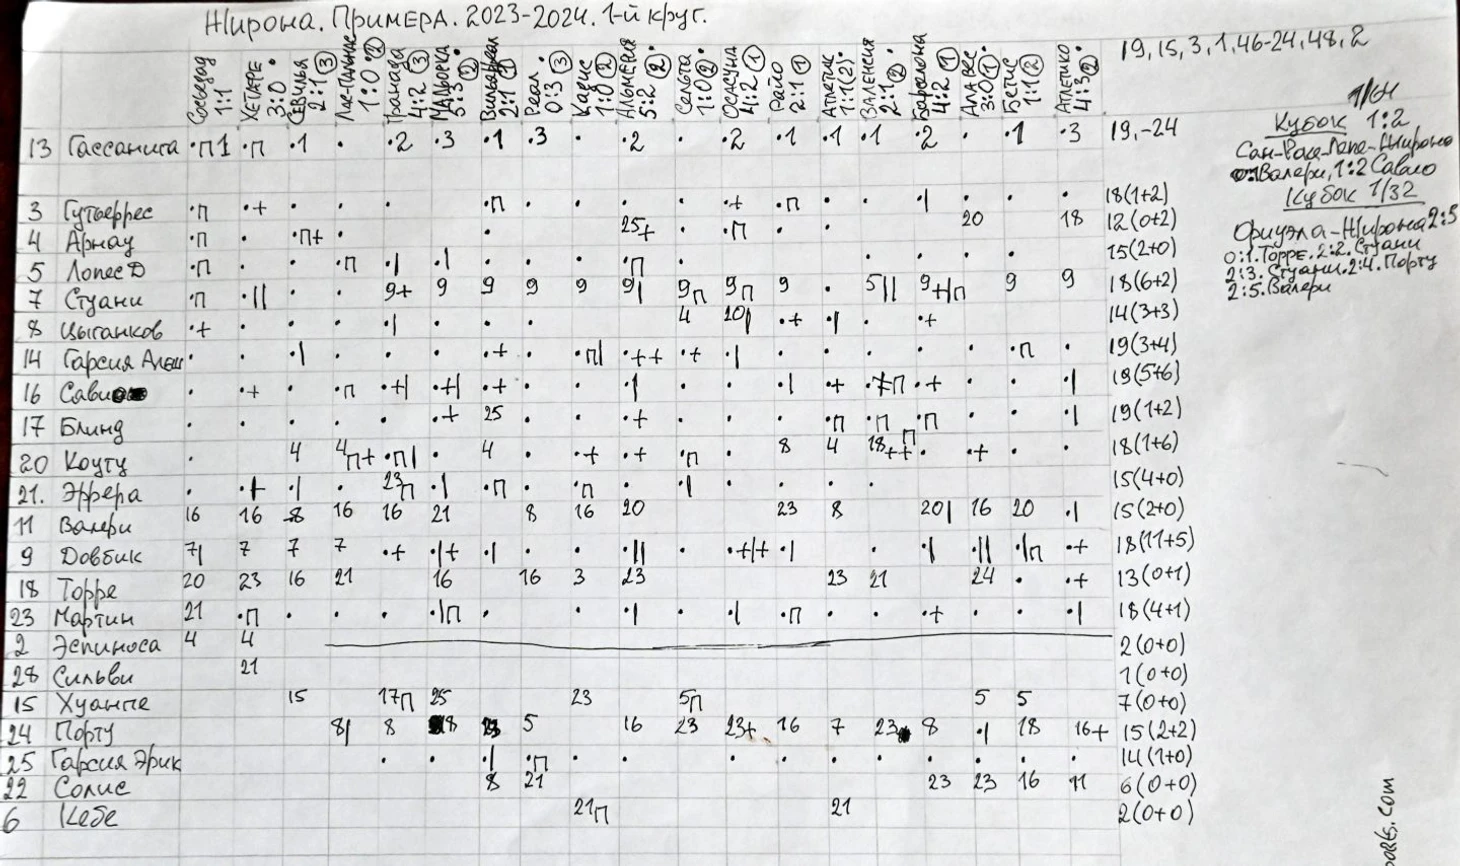 Жирона. Примера. 2023-2024. 1-й круг.
Сосьедад 1:1
Хетафе 3:0 •
Севилья 2:1 ③
Лас-Пальмас 1:0 ②
Гранада 4:2 ③
Мальорка 5:3 ② •
Вильярреал 2:1 ①
Реал 0:3 ③ •
Кадис 1:0 ②
Альмерия 5:2 ② •
Сельта 1:0 ② •
Осасуна 4:2 ①
Райо 2:1 ①
Атлетик 1:1 (2) •
Валенсия 2:1 ② •
Барселона 4:2 ①
Алавес 3:0 ① •
Бетис 1:1 ②
Атлетико 4:3 ② •
19, 15, 3, 1, 46-24, 48, 2
13 Гассанига •п1 •п •1 • •2 •3 •1 •3 • •2 • •2 •1 •1 •1 •2 • •1 •3 19,-24
3 Гутьеррес •п •+ • • • • •п • • • • •+ •п • • •| • • • 18(1+2)
4 Арнау •п • •п+ • • 25+ •п • • 20 18 12(0+2)
5 Лопес Д •п • • •п •| •| •п • • • • • 15(2+0)
7 Стуани •п •|| • • 9+ 9 9 9 9 9| 9п 9п 9 • 5|| 9+|п 9 9 18(6+2)
8 Цыганков •+ • • • •| • • • 4 20| •+ •| • •+ 14(3+3)
14 Гарсия Алеш • • •| • • • •+ • •п| •++ •+ •| • • • • • •п • 19(3+4)
16 Савио • •+ • •п •+| •+| •+ • • •| • • •| •+ •+п •+ • • •| 19(5+6)
17 Блинд • • • • • •+ 25 • • •+ • • • •п •п •п • • •| 19(1+2)
20 Коуту • 4 4п+ •п| • 4 • •+ •+ •п 8 4 18++ п• •+ • • 18(1+6)
21. Эррера • •+ •| • 23п •| •п • •п •| • • • • 15(4+0)
11 Валери 16 16 8 16 16 21 8 16 20 23 8 20| 16 20 •| 15(2+0)
9 Довбик 7| 7 7 7 •+ •|+ •| • • •|| • •+|+ •| • •| •|| •|п •+ 18(11+5)
18 Торре 20 23 16 21 16 16 3 23 23 21 24 • •+ 13(0+1)
23 Мартин 21 •п • • • •|п • • •| • •| •п • • •+ • • •| 18(4+1)
2 Эспиноса 4 4 2(0+0)
28 Сильви 21 1(0+0)
15 Хуанпе 15 17п 25 23 5п 5 5 7(0+0)
24 Порту 8| 8 18 23 5 16 23 23+ 16 7 23 8 •| 18 16+ 15(2+2)
25 Гарсия Эрик • • •| •п • • • • • • • • • • 14(1+0)
22 Солис 8 21 23 23 16 11 6(0+0)
6 Кебе 21п 21 2(0+0)
1/64
Кубок 1:2
Сан-Роке-Лепе-Жирона
0:1 Валери, 1:2 Савио
Кубок 1/32
Ориуэла-Жирона 2:5
0:1. Торре. 2:2. Стуани
2:3. Стуани. 2:4. Порту
2:5. Валери
ports.com